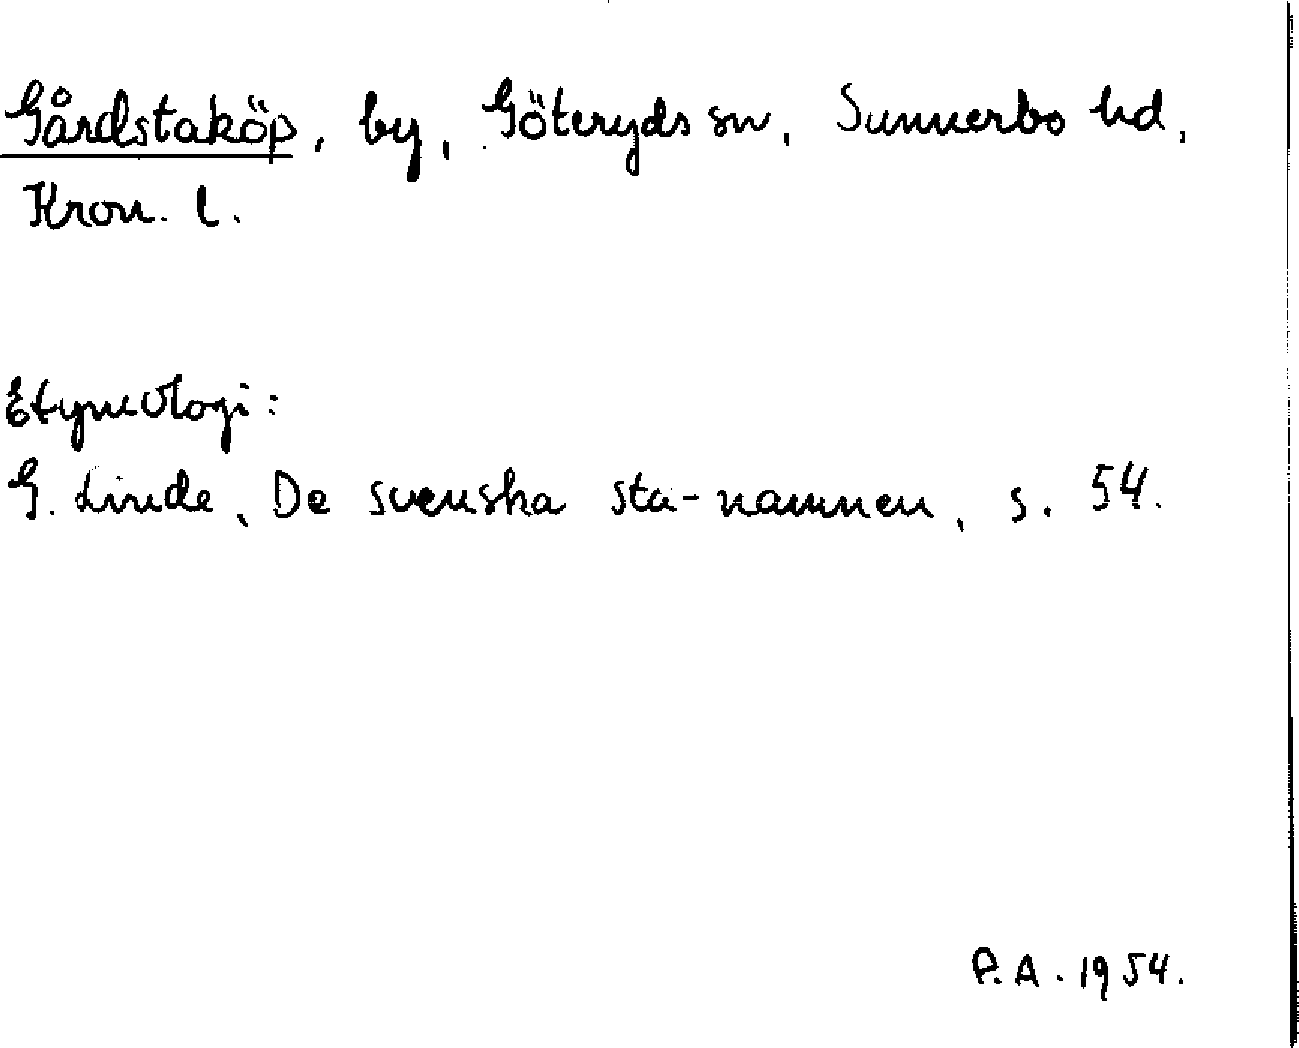 Gårdstaköp, by, Göteryds sn, Sunnerbo hd,
Kron. l.
Etymologi:
G. Linde, De svenska sta-namnen, s. 54.
P.A. 1954.